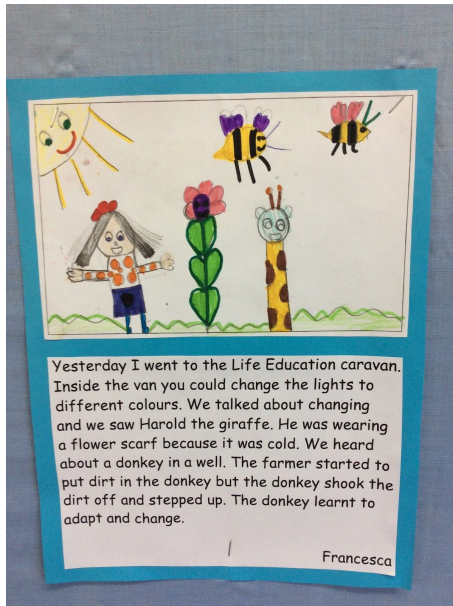 Yesterday I went to the Life Education caravan.
Inside the van you could change the lights to
different colours. We talked about changing
and we saw Harold the giraffe. He was wearing
a flower scarf because it was cold. We heard
about a donkey in a well. The farmer started to
put dirt in the donkey but the donkey shook the
dirt off and stepped up. The donkey learnt to
adapt and change.
Francesca